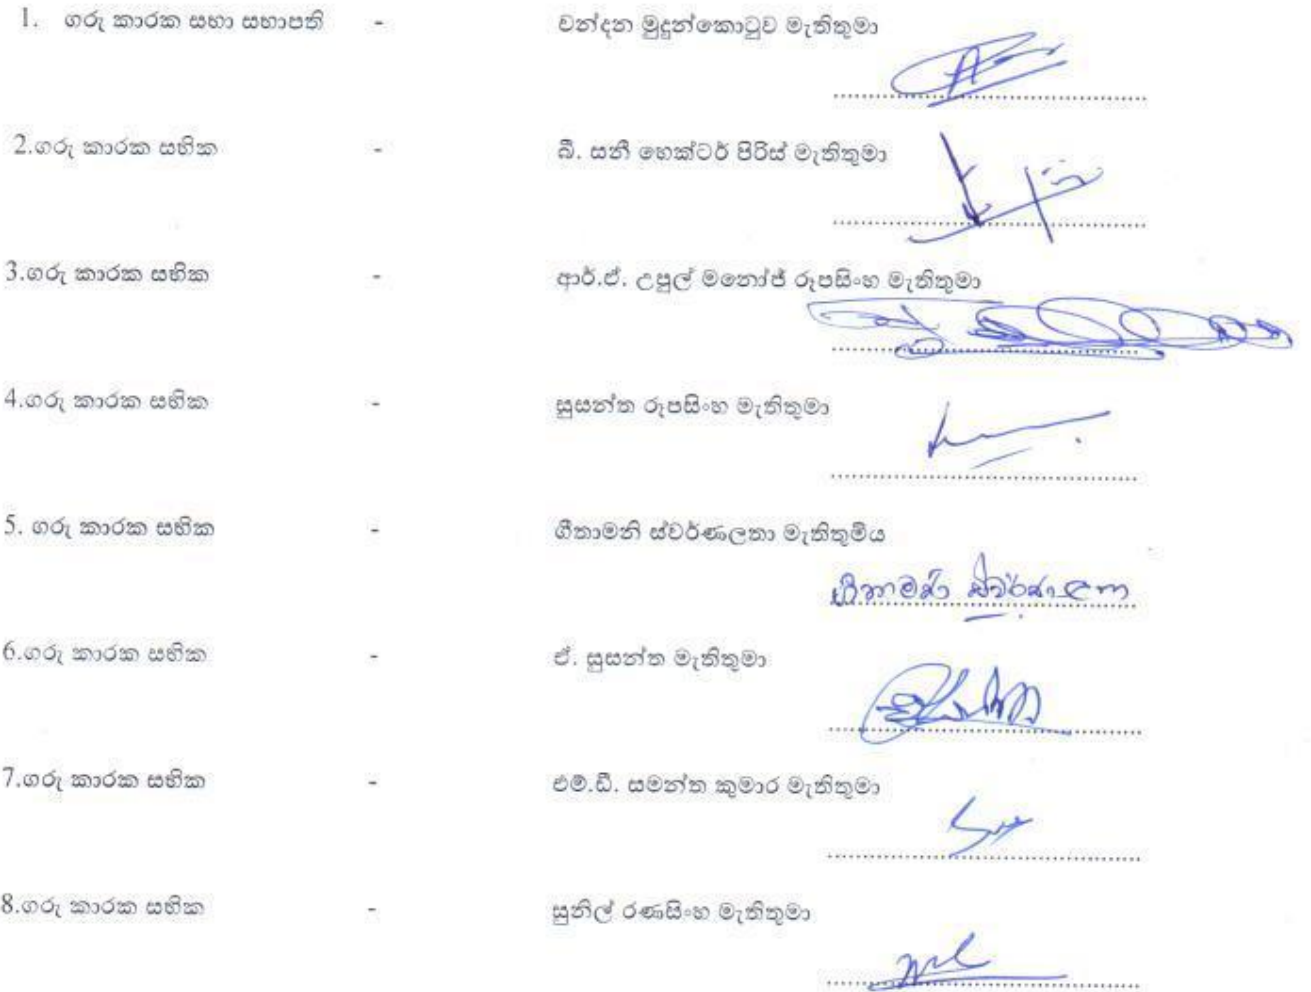 1. ගරු කාරක සභා සභාපති - චන්දන මුදුන්කොටුව මැතිතුමා
2.ගරු කාරක සභික - බී. සනී හෙක්ටර් පිරිස් මැතිතුමා
3.ගරු කාරක සභික - ආර්.ඒ. උපුල් මනෝජ් රූපසිංහ මැතිතුමා
4.ගරු කාරක සභික - සුසන්ත රූපසිංහ මැතිතුමා
5. ගරු කාරක සභික - ගීතාමනි ස්වර්ණලතා මැතිතුමිය
ගීතාමනි ස්වර්ණලතා
6.ගරු කාරක සභික - ඒ. සුසන්ත මැතිතුමා
7.ගරු කාරක සභික - එම්.ඩී. සමන්ත කුමාර මැතිතුමා
8.ගරු කාරක සභික - සුනිල් රණසිංහ මැතිතුමා